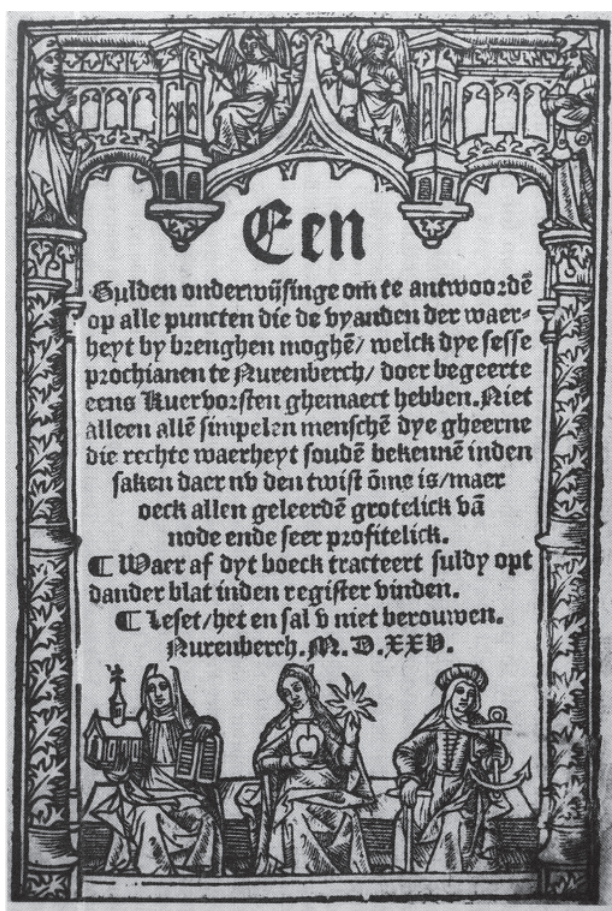 Een
Gulden onderwijsinge om̄ te antwoordē
op alle puncten die de vyanden der waer-
heyt by brenghen moghē/ welck dye sesse
prochianen te Nurenberch/ doer begeerte
eens Kuervorsten ghemaect hebben. Niet
alleen allē simpelen menschē dye gheerne
die rechte waerheyt soudē bekennē inden
saken daer nv den twist ōme is/maer
oeck allen geleerdē grotelick vā
node ende seer profitelick.
¶ Waer af dyt boeck tracteert suldy opt
dander blat inden register vinden.
¶ Leset/het en sal v niet berouwen.
Nurenberch. M. D. XXV.